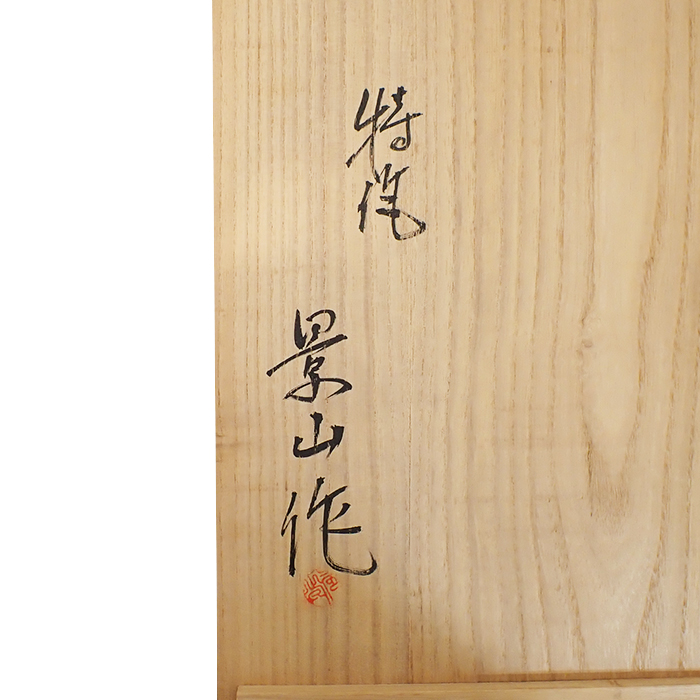 特作
景山作